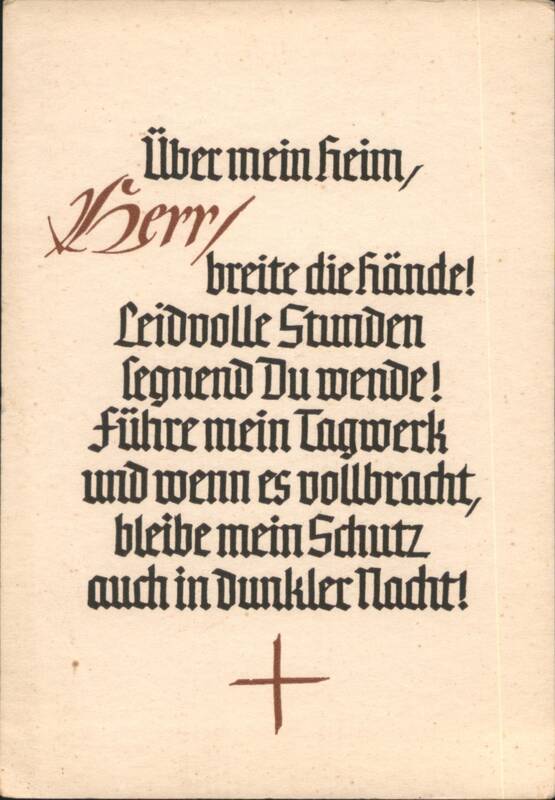 Über mein Heim,
Herr,
breite die Hände!
Leidvolle Stunden
segnend Du wende!
Führe mein Tagwerk
und wenn es vollbracht,
bleibe mein Schutz
auch in dunkler Nacht!